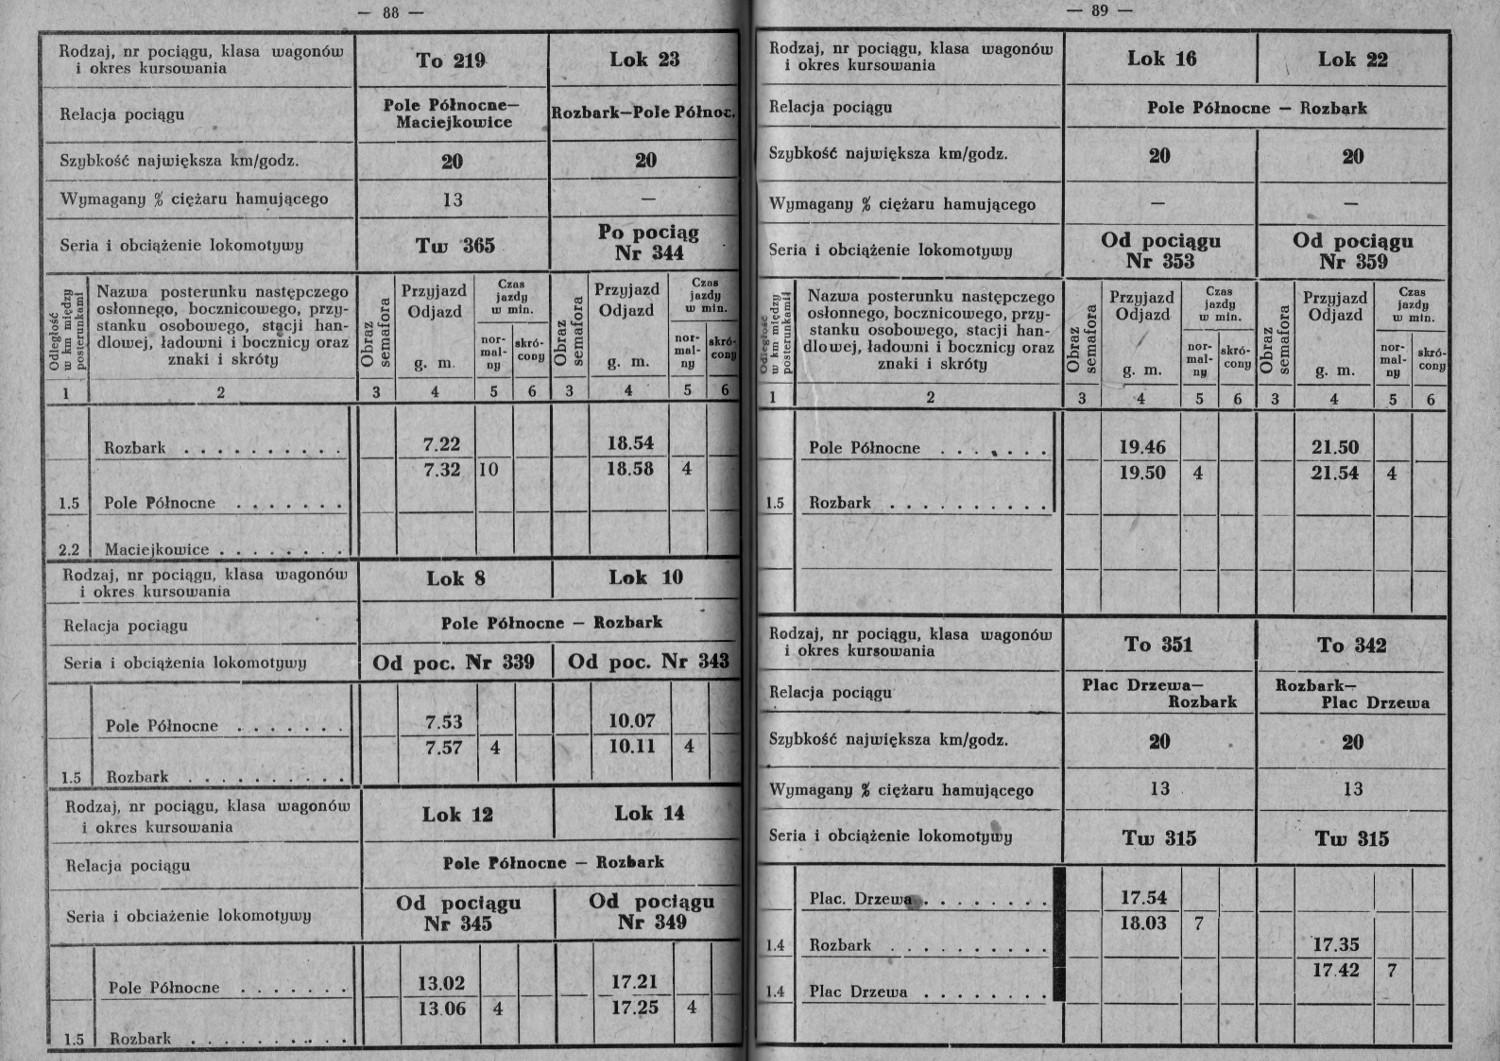 — 88 —
Rodzaj, nr pociągu, klasa wagonów
i okres kursowania
To 219
Lok 23
Relacja pociągu
Pole Północne—
Maciejkowice
Rozbark—Pole Północ.
Szybkość największa km/godz.
20
20
Wymagany % ciężaru hamującego
13
—
Seria i obciążenie lokomotywy
Tw 365
Po pociąg
Nr 344
Odległość
w km między
posterunkami
Nazwa posterunku następczego
osłonnego, bocznicowego, przy-
stanku osobowego, stacji han-
dlowej, ładowni i bocznicy oraz
znaki i skróty
Obraz
semafora
Przyjazd
Odjazd
g. m.
Czas
jazdy
w min.
nor-
mal-
ny
skró-
cony
Obraz
semafora
Przyjazd
Odjazd
g. m.
Czas
jazdy
w min.
nor-
mal-
ny
skró-
cony
1 2 3 4 5 6 3 4 5 6
Rozbark . . . . . . . . . . 7.22 18.54
7.32 10 18.58 4
1.5 Pole Północne . . . . . . .
2.2 Maciejkowice . . . . . . . .
Rodzaj, nr pociągu, klasa wagonów
i okres kursowania
Lok 8
Lok 10
Relacja pociągu
Pole Północne — Rozbark
Seria i obciążenia lokomotywy
Od poc. Nr 339
Od poc. Nr 343
Pole Północne . . . . . . . 7.53 10.07
7.57 4 10.11 4
1.5 Rozbark . . . . . . . . . .
Rodzaj, nr pociągu, klasa wagonów
i okres kursowania
Lok 12
Lok 14
Relacja pociągu
Pole Północne — Rozbark
Seria i obciażenie lokomotywy
Od pociągu
Nr 345
Od pociągu
Nr 349
Pole Północne . . . . . . . 13.02 17.21
13 06 4 17.25 4
1.5 Rozbark . . . . . . . . . .
— 89 —
Rodzaj, nr pociągu, klasa wagonów
i okres kursowania
Lok 16
Lok 22
Relacja pociągu
Pole Północne — Rozbark
Szybkość największa km/godz.
20
20
Wymagany % ciężaru hamującego
—
—
Seria i obciążenie lokomotywy
Od pociągu
Nr 353
Od pociągu
Nr 359
Odległość
w km między
posterunkami
Nazwa posterunku następczego
osłonnego, bocznicowego, przy-
stanku osobowego, stacji han-
dlowej, ładowni i bocznicy oraz
znaki i skróty
Obraz
semafora
Przyjazd
Odjazd
g. m.
Czas
jazdy
w min.
nor-
mal-
ny
skró-
cony
Obraz
semafora
Przyjazd
Odjazd
g. m.
Czas
jazdy
w min.
nor-
mal-
ny
skró-
cony
1 2 3 4 5 6 3 4 5 6
Pole Północne . . . . . . . 19.46 21.50
19.50 4 21.54 4
1.5 Rozbark . . . . . . . . . .
Rodzaj, nr pociągu, klasa wagonów
i okres kursowania
To 351
To 342
Relacja pociągu
Plac Drzewa—
Rozbark
Rozbark—
Plac Drzewa
Szybkość największa km/godz.
20
20
Wymagany % ciężaru hamującego
13
13
Seria i obciążenie lokomotywy
Tw 315
Tw 315
Plac. Drzewa . . . . . . . . 17.54
18.03 7
1.4 Rozbark . . . . . . . . . . 17.35
17.42 7
1.4 Plac Drzewa . . . . . . . .